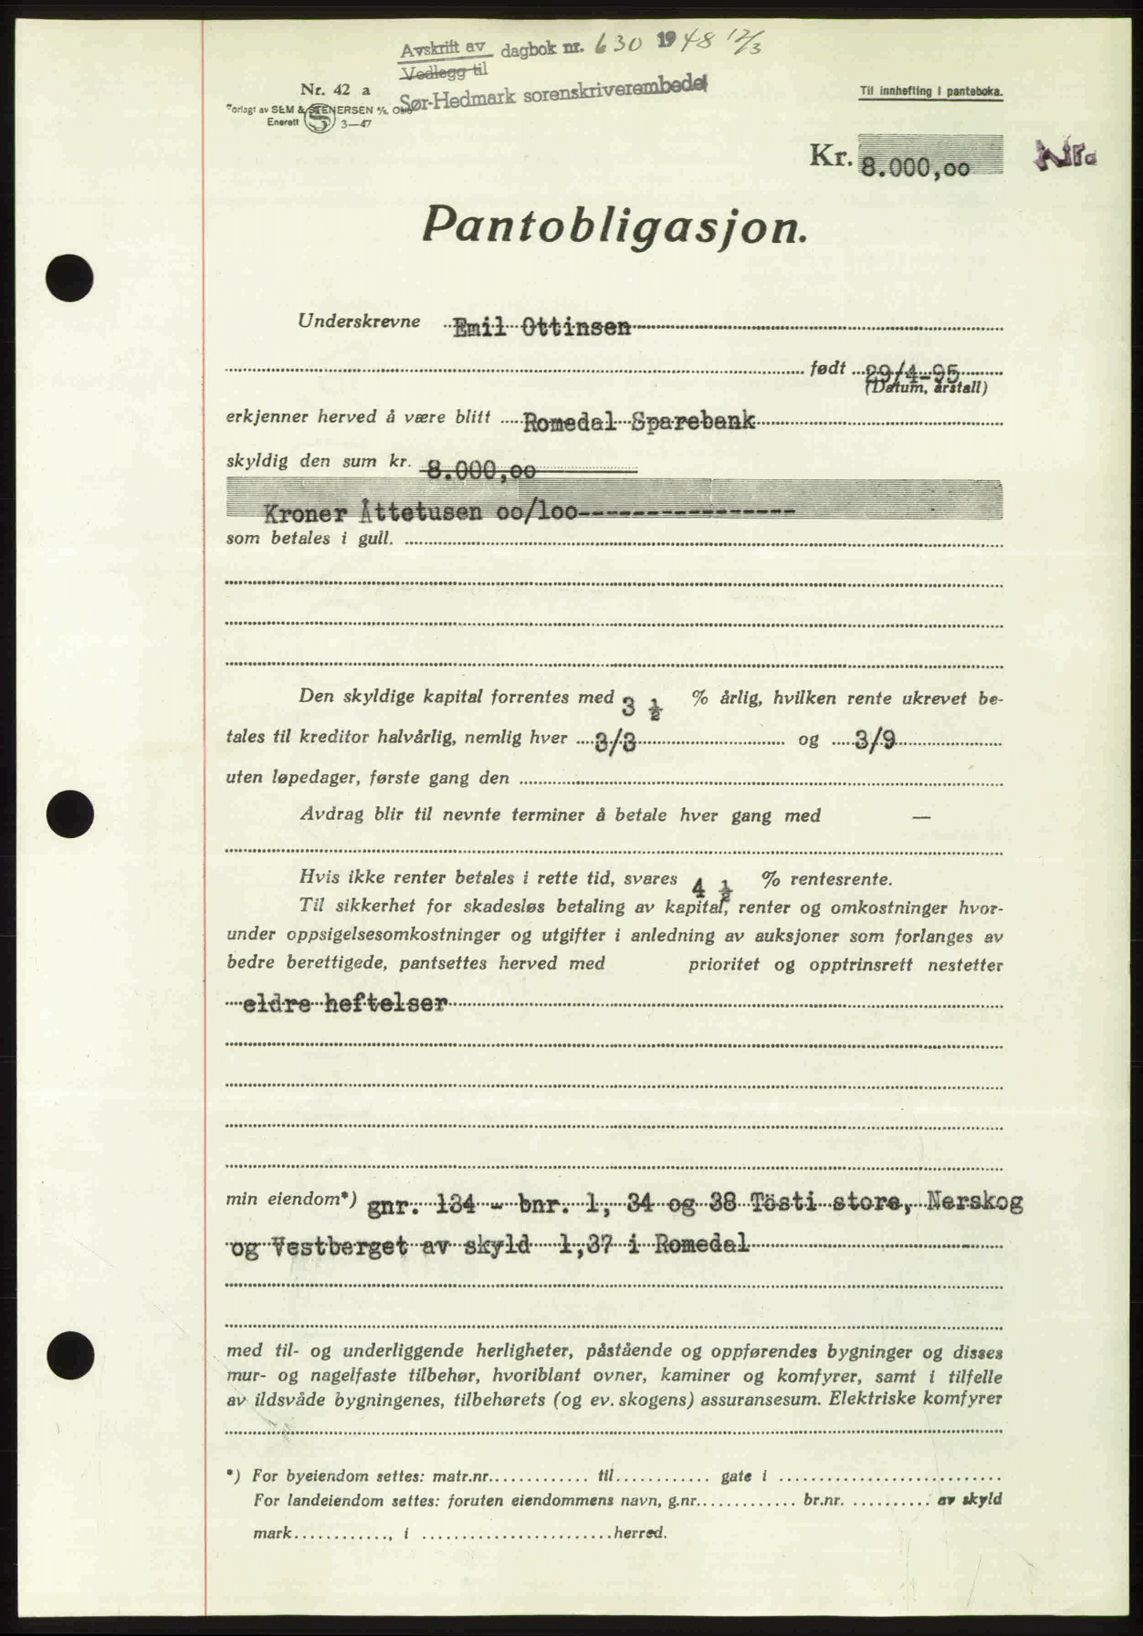 Avskrift av dagbok nr. 630 1948 12/3
Vedlegg til
Sør-Hedmark sorenskriverembedet
Nr. 42 a
Forlagt av SEM & STENERSEN A/S, Oslo
Enerett S 3—47
Til innhefting i panteboka.
Kr. 8.000,00 Nr.
Pantobligasjon.
Underskrevne Emil Ottinsen
født 29/4-95
(Datum, årstall)
erkjenner herved å være blitt Romedal Sparebank
skyldig den sum kr. 8.000,00
Kroner Åttetusen 00/100-----------------
som betales i gull.
Den skyldige kapital forrentes med 3 ½ % årlig, hvilken rente ukrevet be-
tales til kreditor halvårlig, nemlig hver 3/3 og 3/9
uten løpedager, første gang den
Avdrag blir til nevnte terminer å betale hver gang med —
Hvis ikke renter betales i rette tid, svares 4 ½ % rentesrente.
Til sikkerhet for skadesløs betaling av kapital, renter og omkostninger hvor-
under oppsigelsesomkostninger og utgifter i anledning av auksjoner som forlanges av
bedre berettigede, pantsettes herved med prioritet og opptrinsrett nestetter
eldre heftelser
min eiendom*) gnr. 134 - bnr. 1, 34 og 38 Tösti store, Nerskog
og Vestberget av skyld 1,37 i Romedal
med til- og underliggende herligheter, påstående og oppførendes bygninger og disses
mur- og nagelfaste tilbehør, hvoriblant ovner, kaminer og komfyrer, samt i tilfelle
av ildsvåde bygningenes, tilbehørets (og ev. skogens) assuransesum. Elektriske komfyrer
*) For byeiendom settes: matr.nr............. til............ gate i ............................
For landeiendom settes: foruten eiendommens navn, g.nr............. br.nr. .......... av skyld
mark............, i ........................herred.